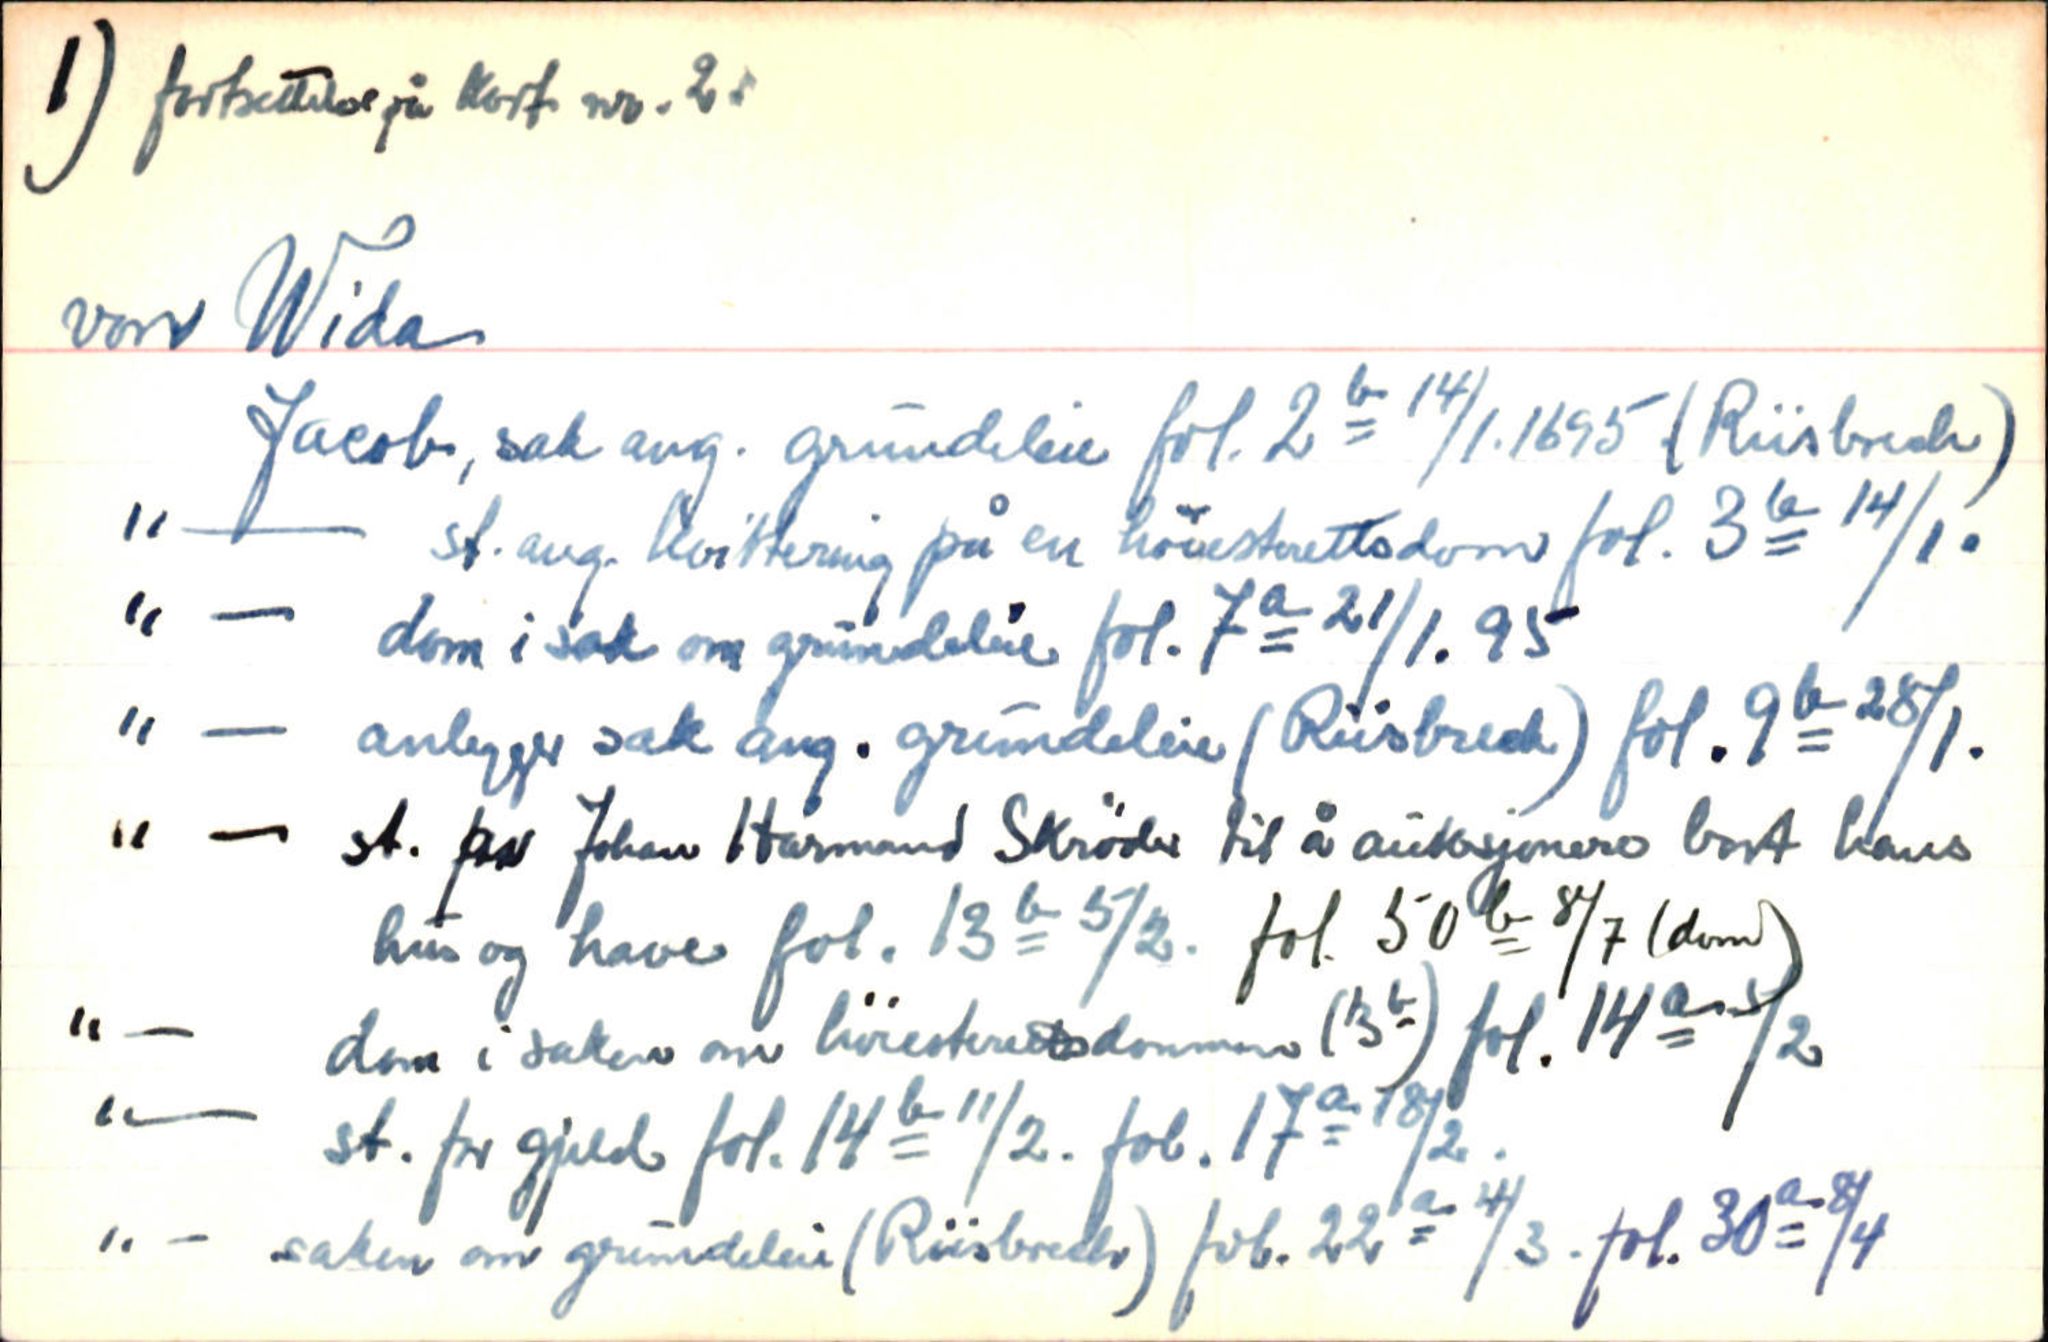 1) fortsettelse på Kort nr. 2.
von Wida
Jacob, sak ang. grundeleie fol. 2 b 14/1. 1695 (Riisbrech)
"— st. ang. kvittering på en höiesterettsdom fol. 3 b 14/1.
" — dom i sak om grundeleie fol. 7 a 21/1. 95
" — anlegger sak ang. grundeleie (Riisbrech) fol. 9 b 28/1.
" — st. av Johan Harmand Skröder til å auksjonere bort hans
hus og have fol. 13 b 5/2. fol. 50 b 8/7 (dom)
" — dom i saken om höiesterettsdommen (3 b) fol. 14 a 5/2
"— st. for gjeld fol. 14 b 11/2. fol. 17 a 18/2.
" — saken om grundeleie (Riisbrech) fol. 22 a 4/3. fol. 30 a 8/4